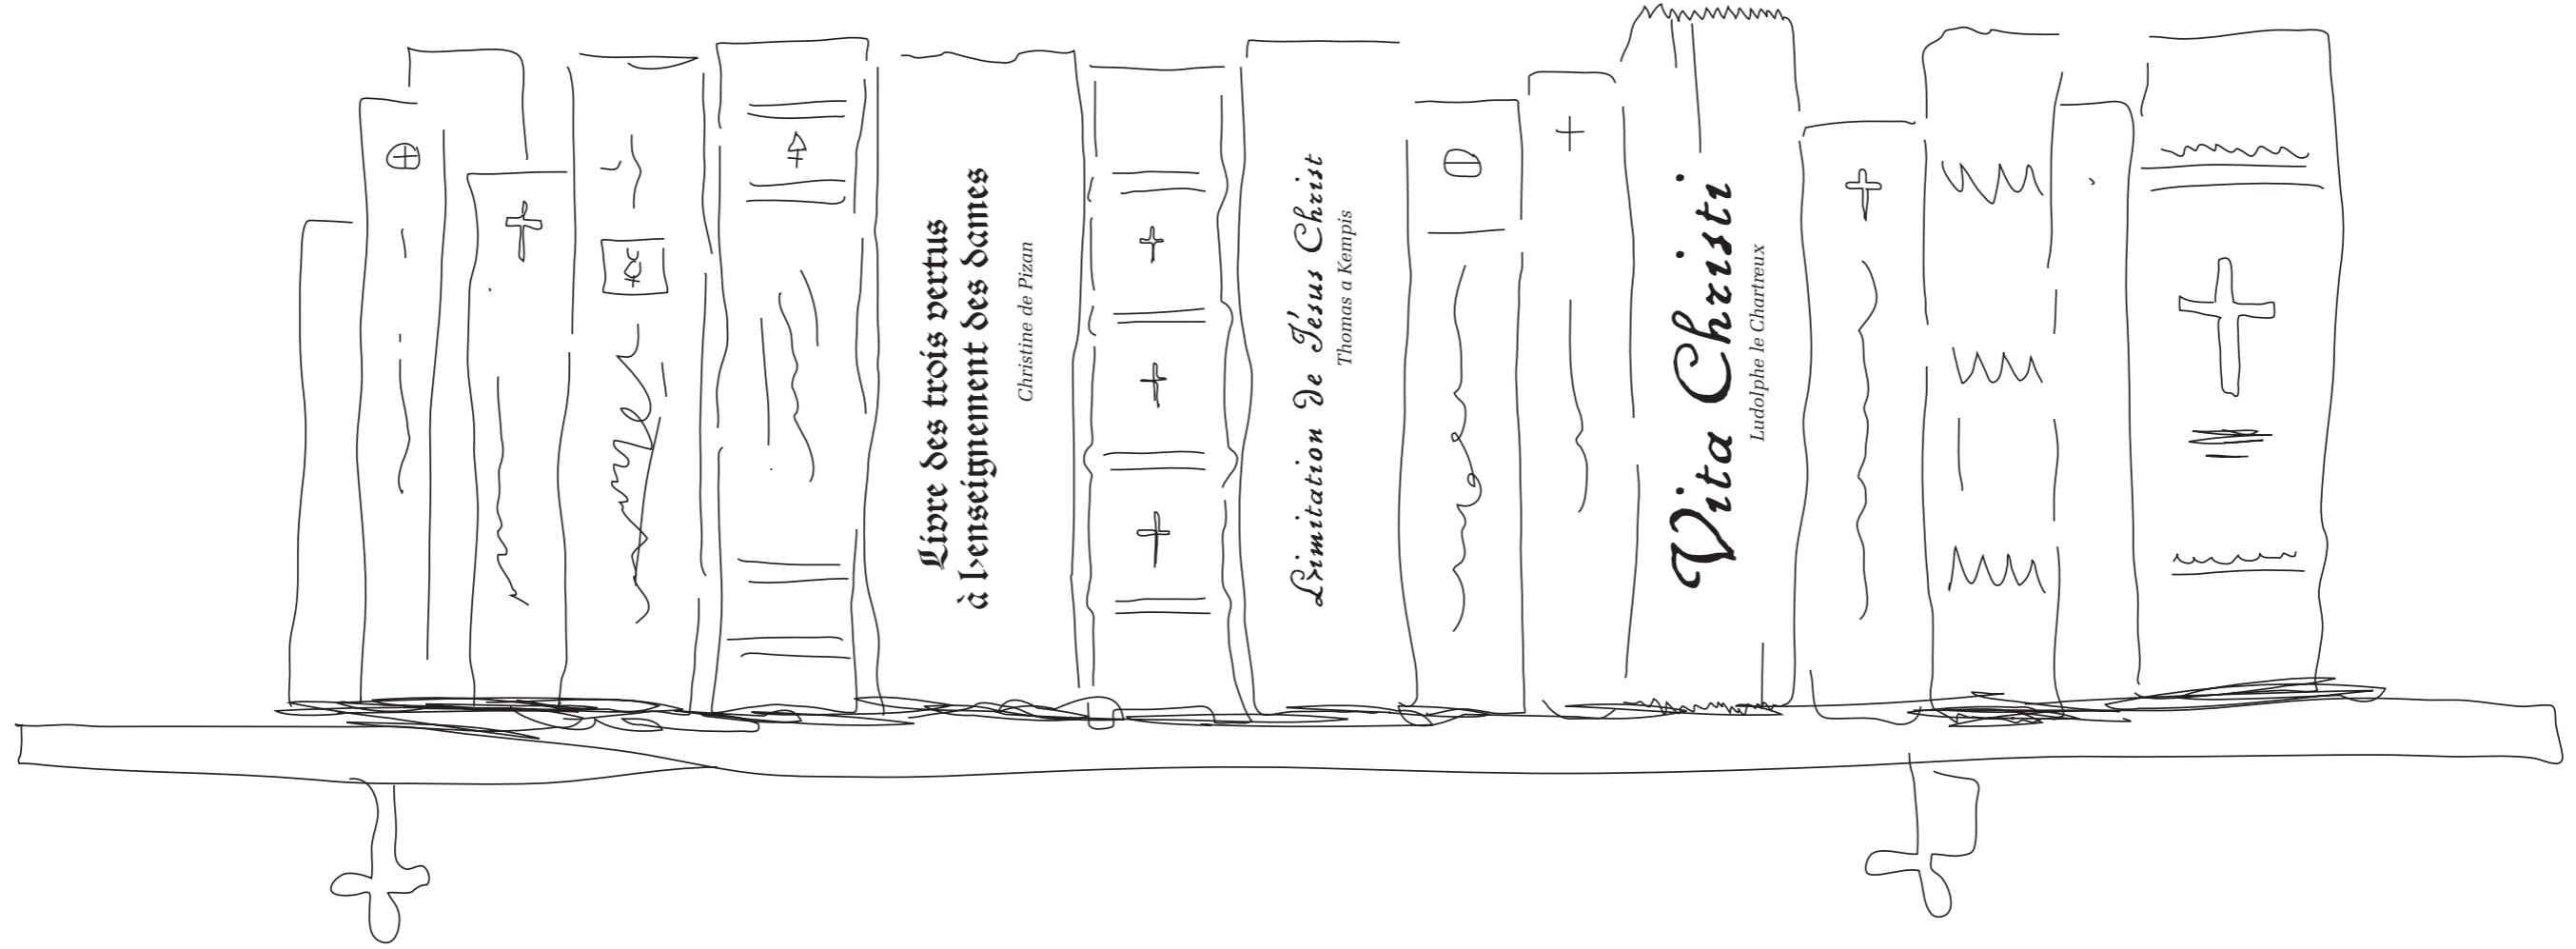 Livre des trois vertus
à l›enseignement des dames
Christine de Pizan
L›imitation de Jésus Christ
Thomas a Kempis
Vita Christi
Ludolphe le Chartreux